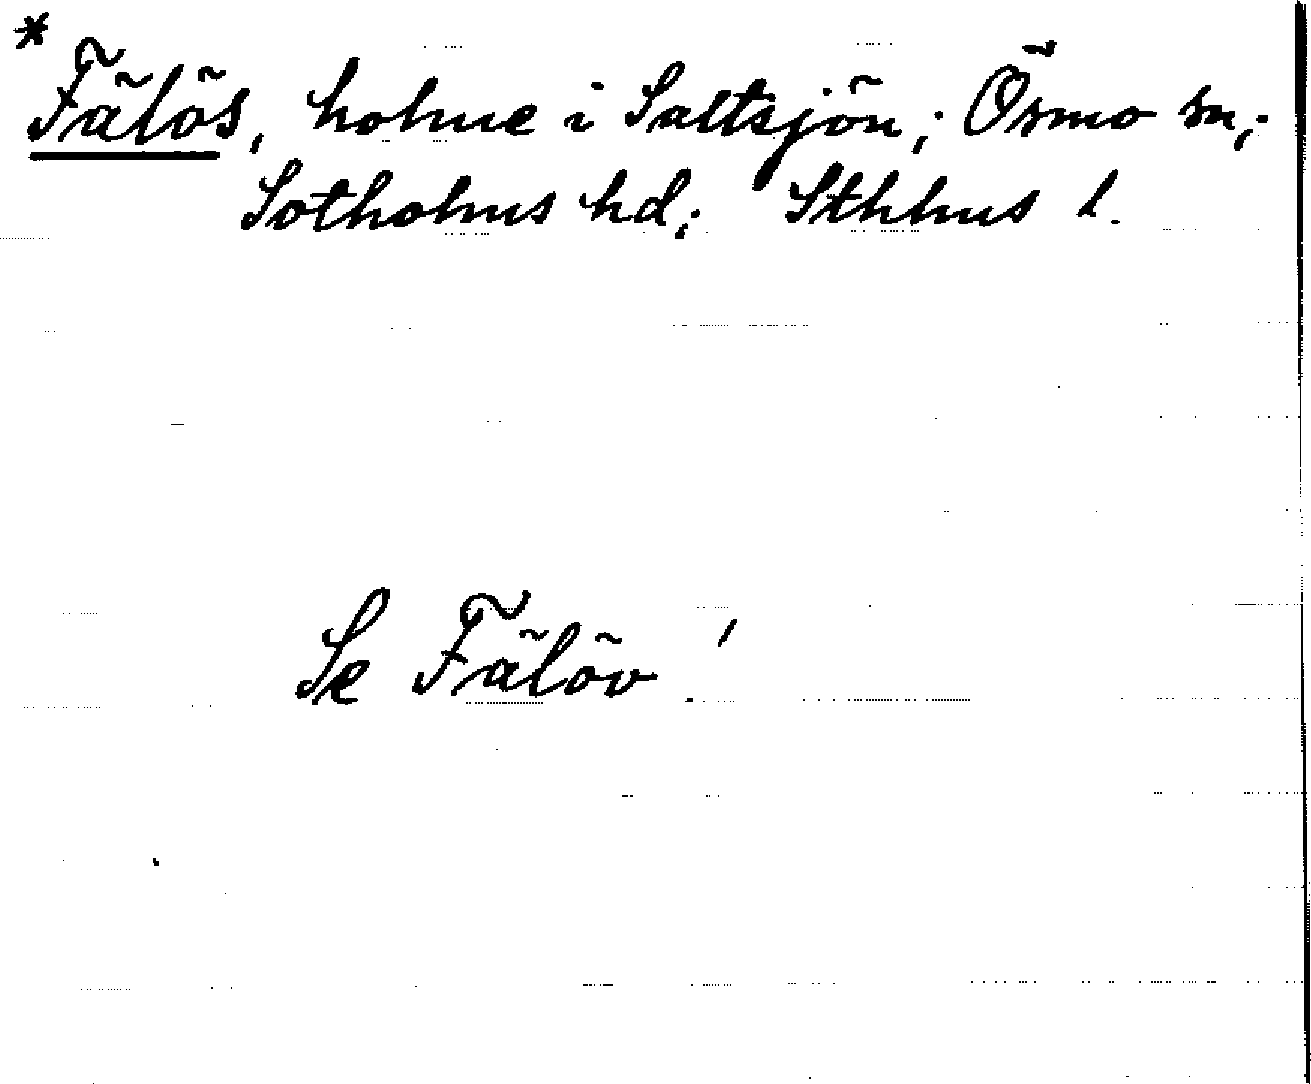 * Fälös, holme i Saltsjön; Ösmo sn;
Sotholms hd; Sthlms l.
Se Fälöv